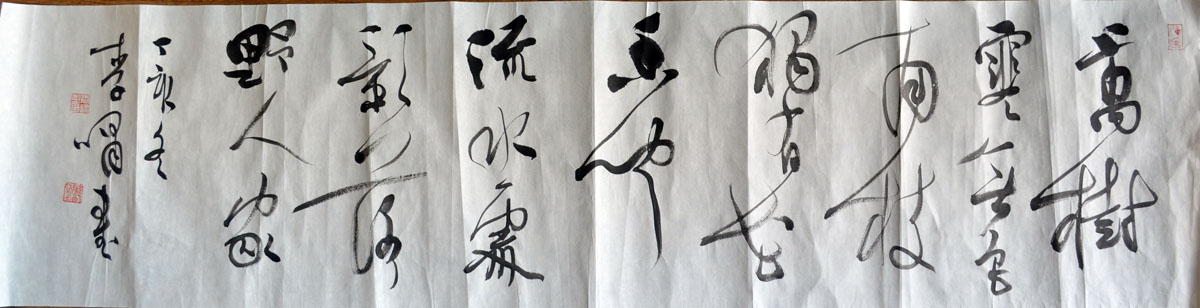 萬樹
寒無色
南枝
獨有花
香聞
流水處
影落
野人家
丁亥冬
李 書